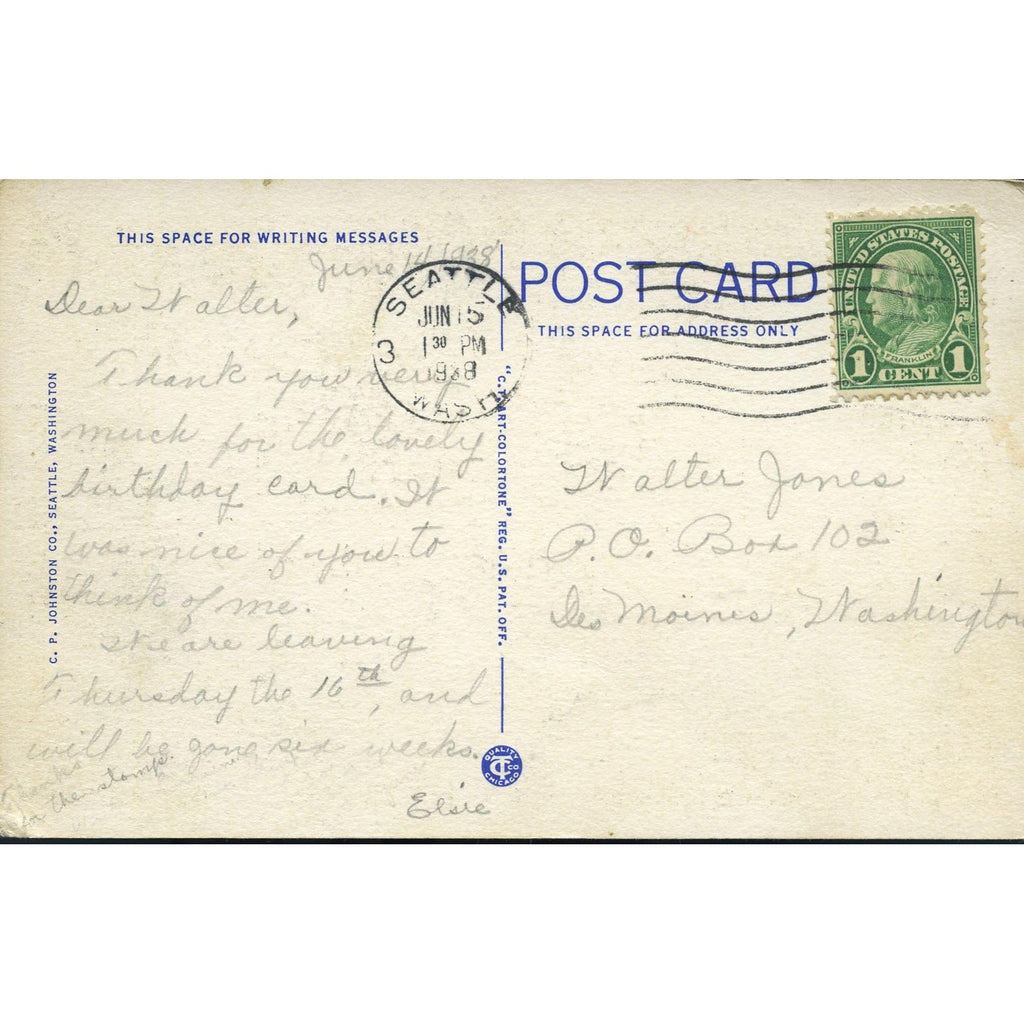 THIS SPACE FOR WRITING MESSAGES
June 14, 1938
Dear Walter,
Thank you very
much for the lovely
birthday card. It
was nice of you to
think of me.
We are leaving
Thursday the 16th, and
will be gone six weeks.
Elsie
Thanks
for the stamps.
C. P. JOHNSTON CO., SEATTLE, WASHINGTON
SEATTLE
JUN 15
1 30 PM
1938
3
WASH.
"C.T. ART-COLORTONE" REG. U.S. PAT. OFF.
QUALITY
CHICAGO
POST CARD
THIS SPACE FOR ADDRESS ONLY
UNITED STATES POSTAGE
FRANKLIN
1 CENT 1
Walter Jones
P.O. Box 102
Des Moines, Washington